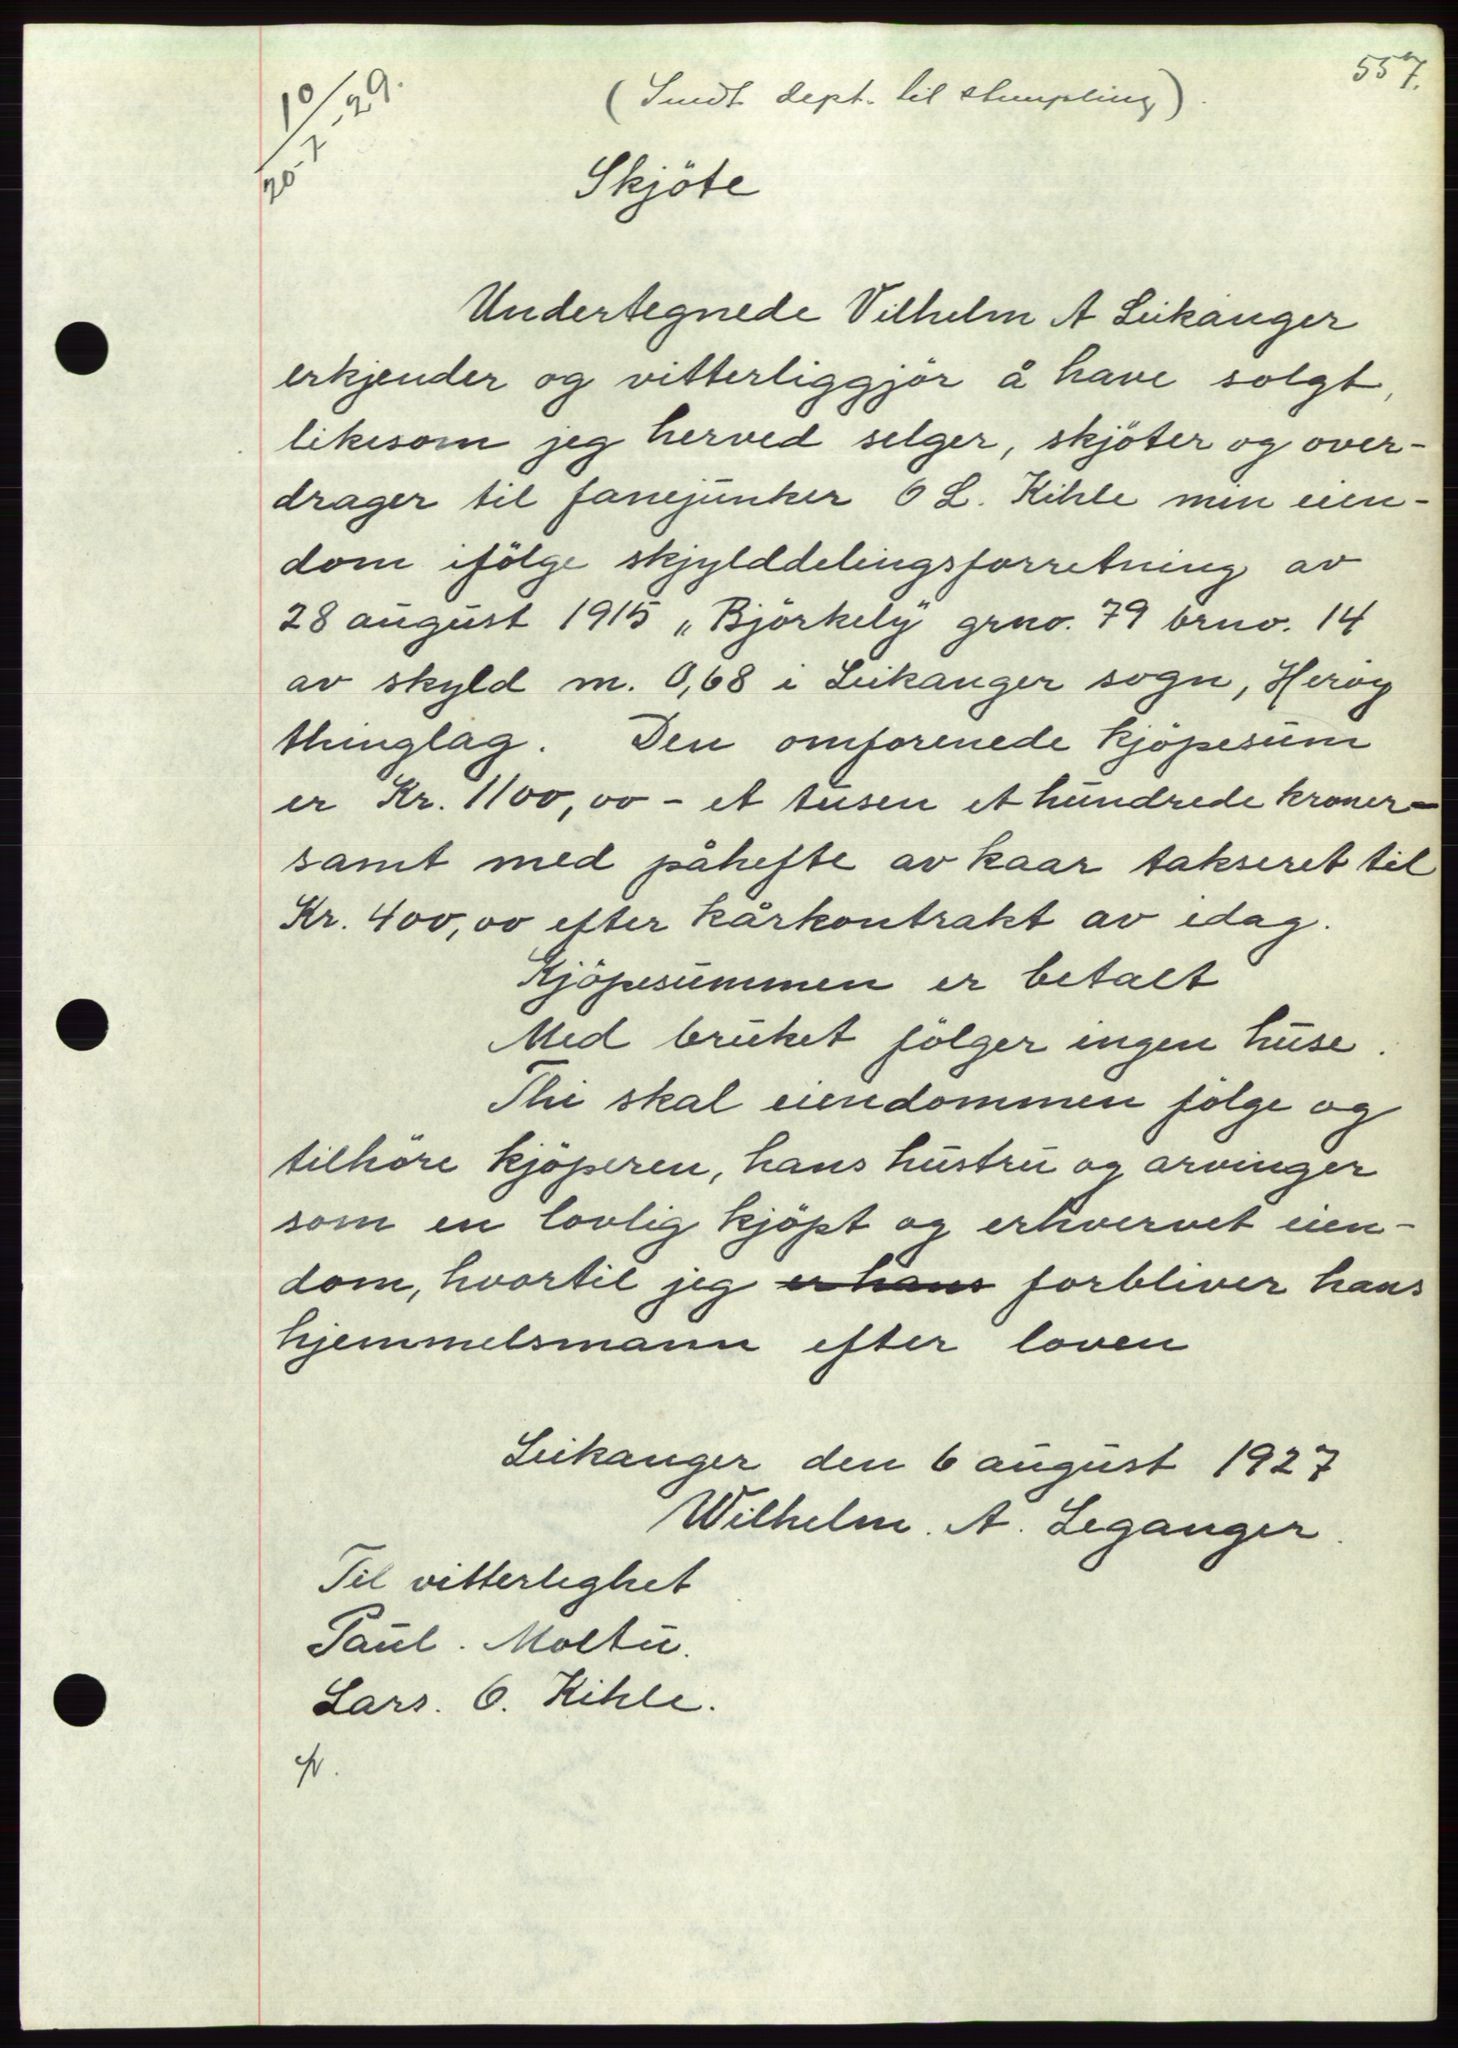 557.
10/20-7-29.
(Sendt dept. til stempling).
Skjöte
Undertegnede Vilhelm A Leikanger
erkjender og vitterliggjör å have solgt,
likesom jeg herved selger, skjöter og over-
drager til fanejunker O L. Kihle min eien-
dom ifölge skjylddelingsforretning av
28 august 1915 „Björkely" grno. 79 brno. 14
av skyld m. 0,68 i Leikanger sogn, Heröy
thinglag. Den omforenede kjöpesum
er Kr. 1100,00 - et tusen et hundrede kroner-
samt med påhefte av kaar takseret til
Kr. 400,00 efter kårkontrakt av idag.
Kjöpesummen er betalt
Med bruket fölger ingen huse.
Thi skal eiendommen fölge og
tilhöre kjöperen, hans hustru og arvinger
som en lovlig kjöpt og erhvervet eien-
dom, hvortil jeg er hans forbliver hans
hjemmelsmann efter loven
Leikanger den 6 august 1927
Wilhelm. A. Leganger.
Til vitterlighet
Paul. Moltu.
Lars. O. Kihle.